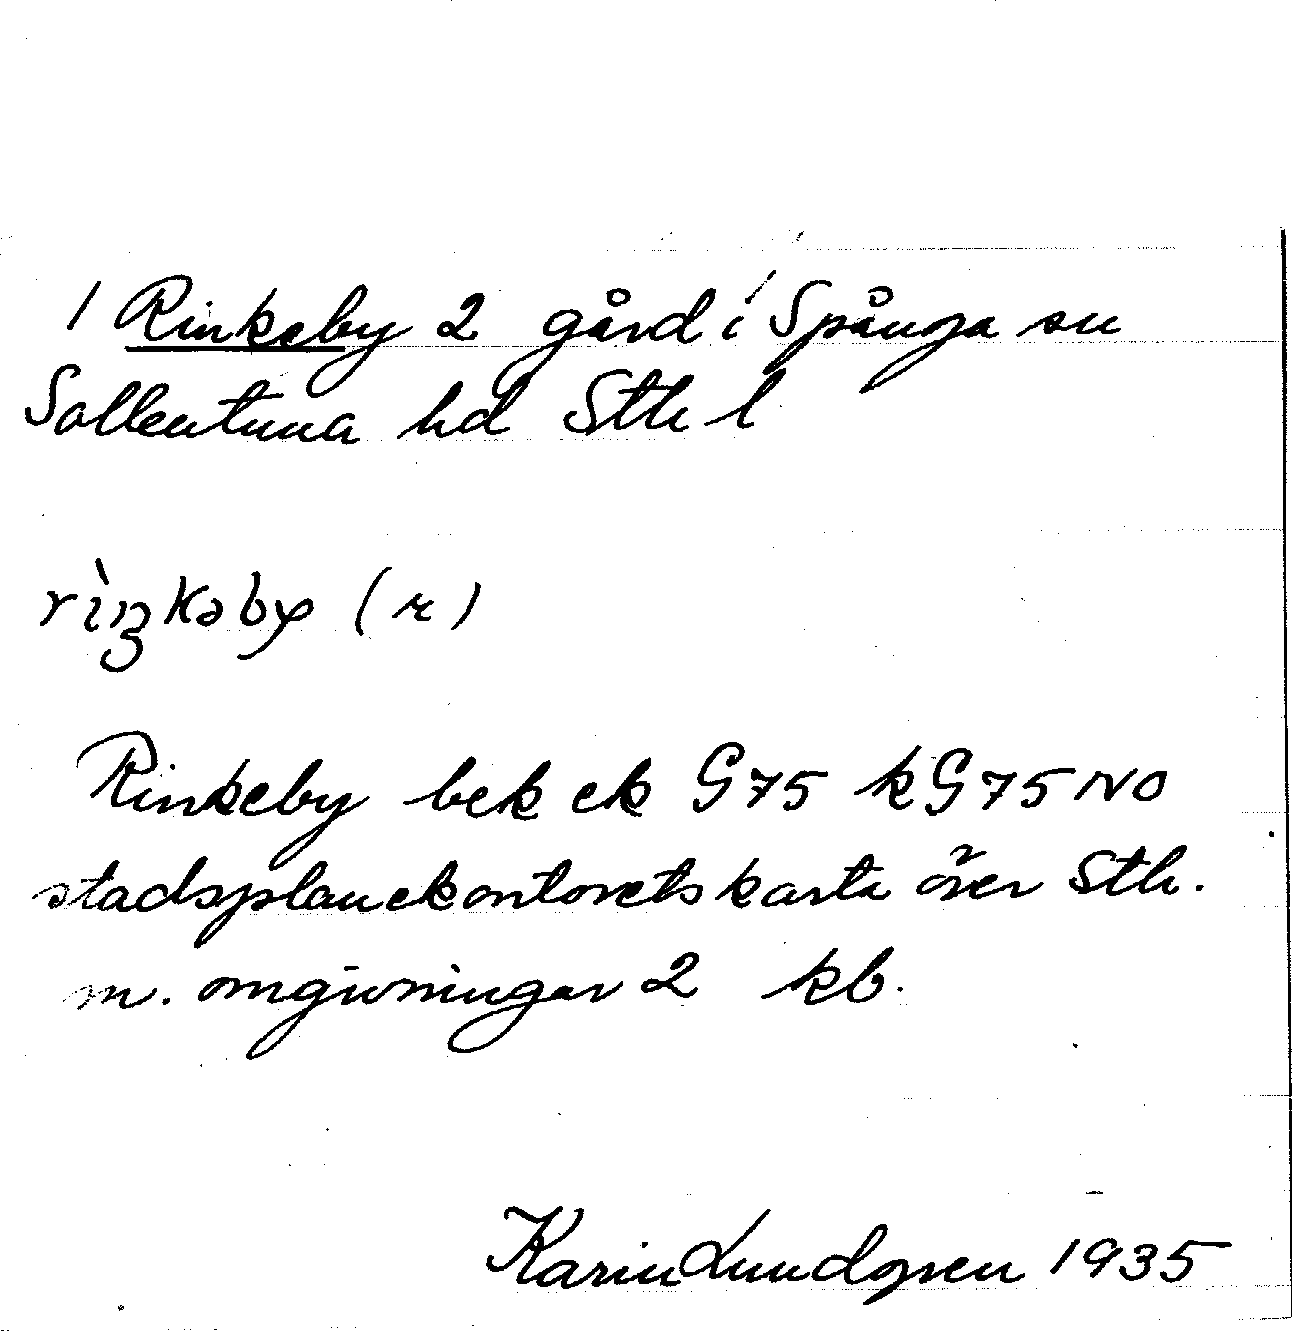 1 Rinkeby 2 gård i Spånga sn
Sollentuna hd Sth l
rìŋkəby (r)
Rinkeby bek ek G75 kG75NO
stadsplanekontorets karta över Sth.
m. omgivningar 2 kb.
Karin Lundgren 1935